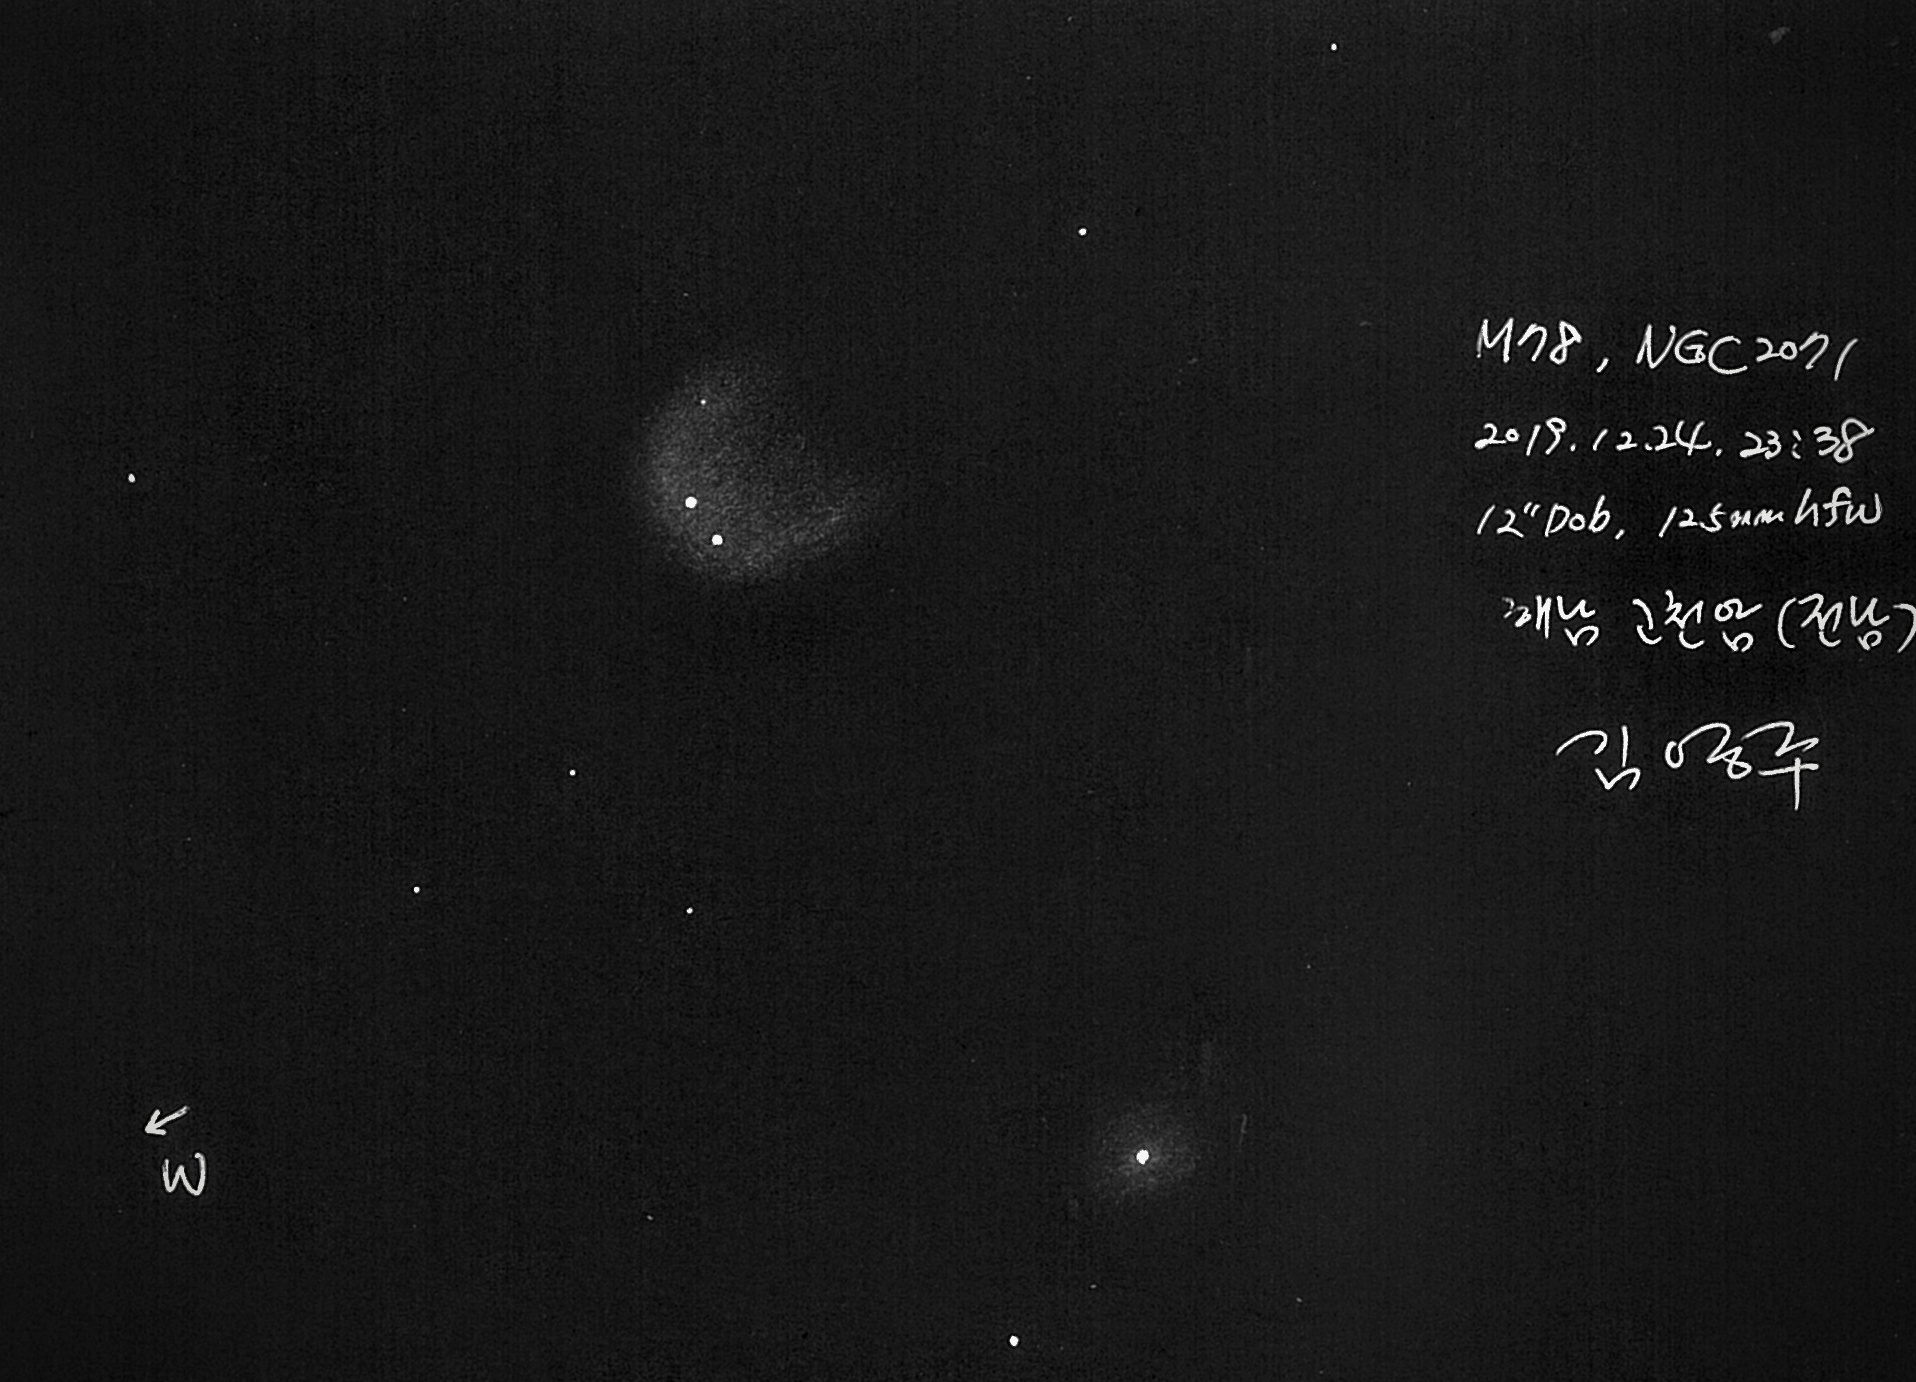 M78, NGC2071
2019.12.24. 23:38
12" Dob, 125mm hfw
해남 고천암 (전남)
김영주
W